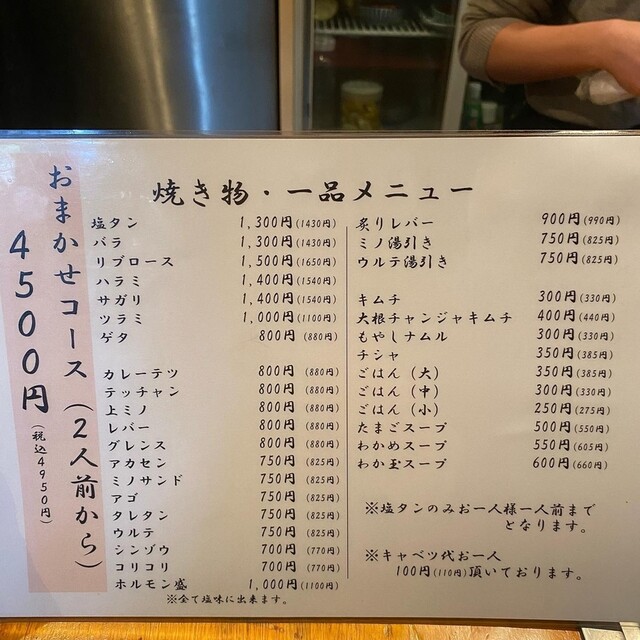 おまかせコース（2人前から）
4500円（税込4950円）
焼き物・一品メニュー
塩タン 1,300円(1430円)
バラ 1,300円(1430円)
リブロース 1,500円(1650円)
ハラミ 1,400円(1540円)
サガリ 1,400円(1540円)
ツラミ 1,000円(1100円)
ゲタ 800円(880円)
カレーテツ 800円(880円)
テッチャン 800円(880円)
上ミノ 800円(880円)
レバー 800円(880円)
グレンス 800円(880円)
アカセン 750円(825円)
ミノサンド 750円(825円)
アゴ 750円(825円)
タレタン 750円(825円)
ウルテ 750円(825円)
シンゾウ 700円(770円)
コリコリ 700円(770円)
ホルモン盛 1,000円(1100円)
※全て塩味に出来ます。
炙りレバー 900円(990円)
ミノ湯引き 750円(825円)
ウルテ湯引き 750円(825円)
キムチ 300円(330円)
大根チャンジャキムチ 400円(440円)
もやしナムル 300円(330円)
チシャ 350円(385円)
ごはん（大） 350円(385円)
ごはん（中） 300円(330円)
ごはん（小） 250円(275円)
たまごスープ 500円(550円)
わかめスープ 550円(605円)
わか玉スープ 600円(660円)
※塩タンのみお一人様一人前まで
となります。
※キャベツ代お一人
100円(110円)頂いております。